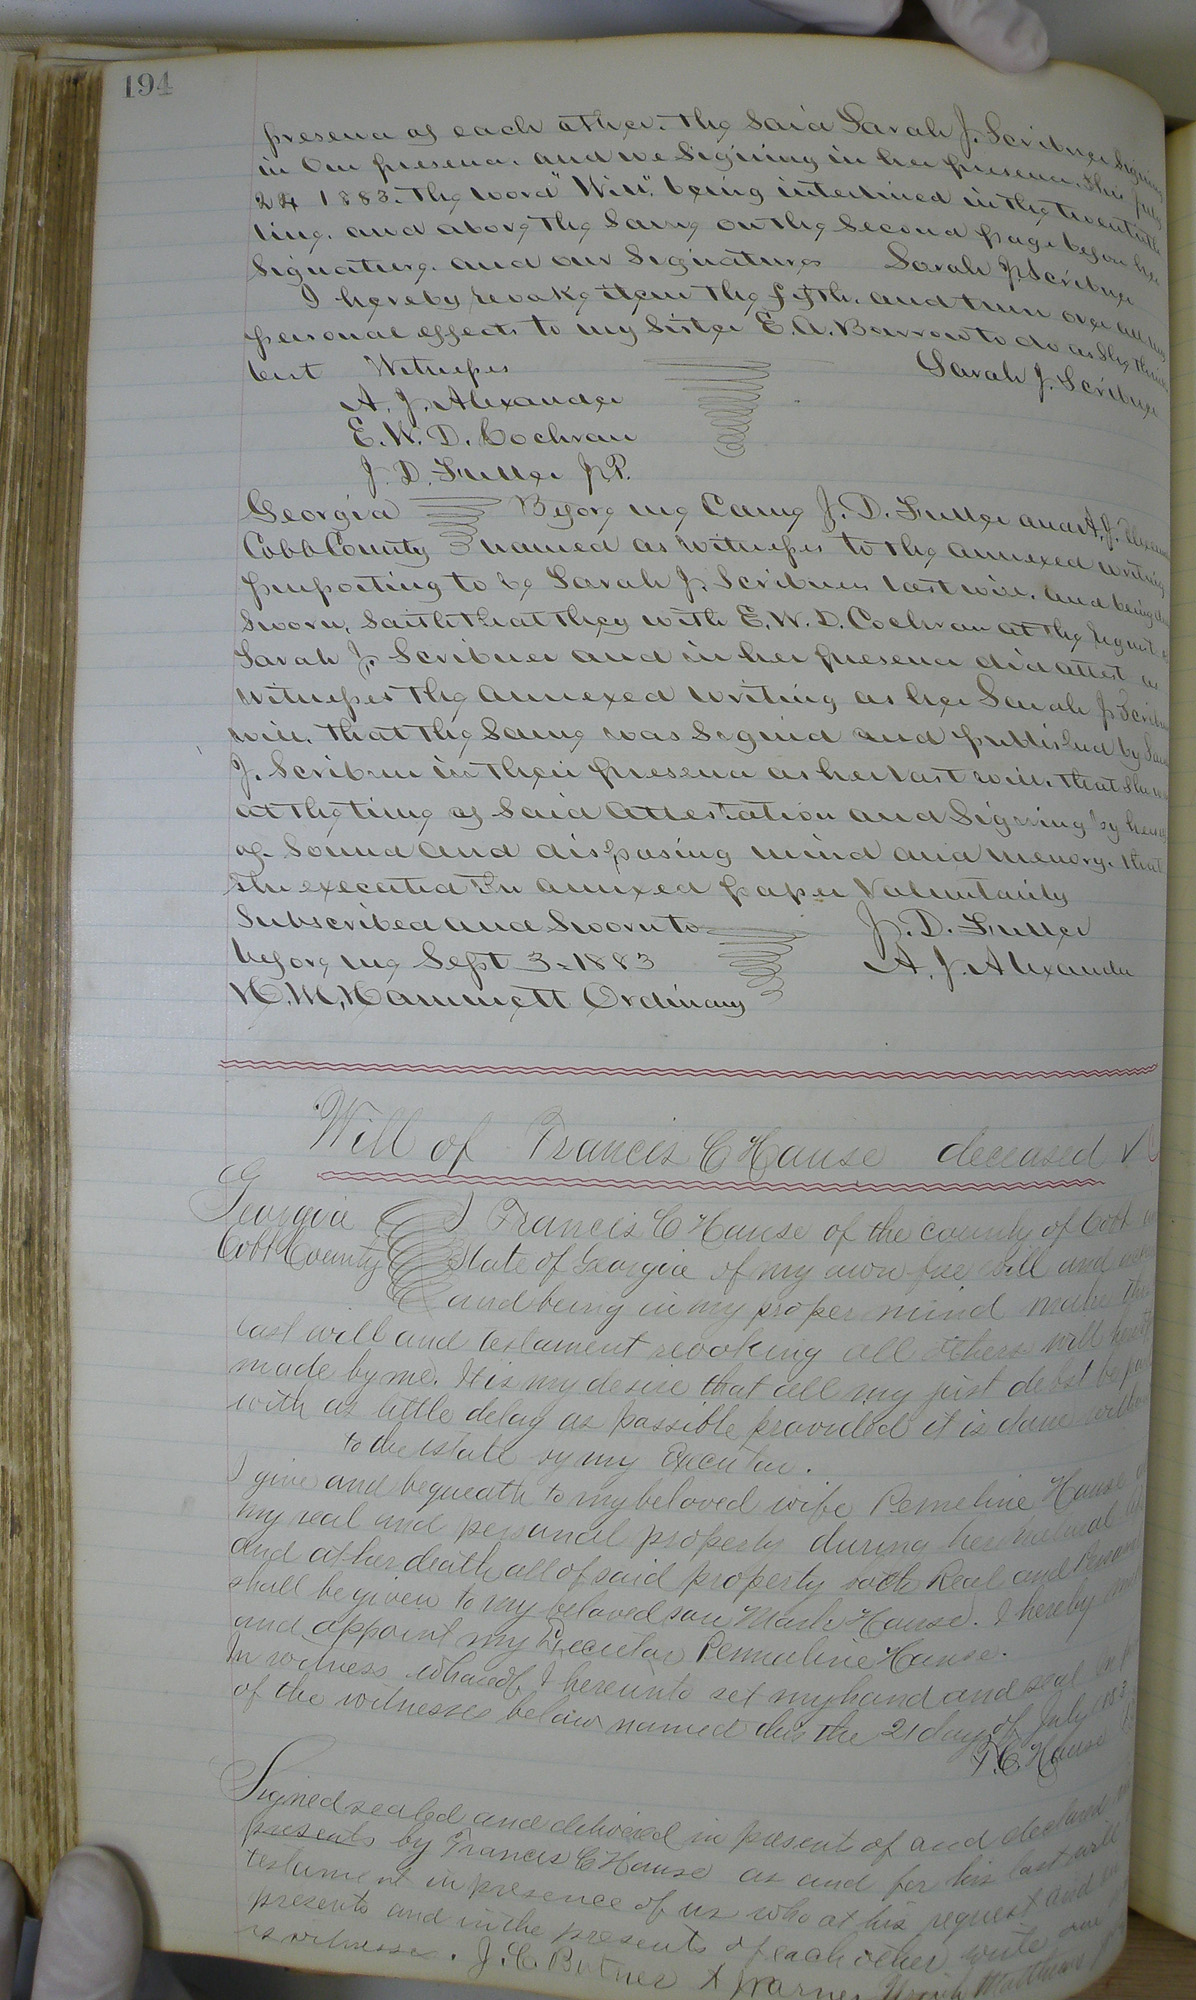 194
presence of each other. The said Sarah J. Scribner signing
in our presence. and we signing in her presence. this July
24 1883. The word "Will" being interlined in the twentieth
line. and above the same on the second page before her
signature. and our signatures Sarah J. Scribner
I hereby revoke item the fifth. and turn over all my
personal effects to my sister E. A. Barrow to do as she thinks
best Witness
Sarah J. Scribner
A. J. Alexander
E. W. D. Cochran
J. D. Fuller J.P.
Georgia Before me came J. D. Fuller and A. J.
Cobb County named as witnesses to the annexed writing
purporting to be Sarah J. Scribners last will. and being
sworn, saith that they with E. W. D. Cochran at the request
Sarah J. Scribner and in her presence did attest as
witnesses the annexed writing as her Sarah J. Scribners
will. that the same was signed and published by
J. Scribner in their presence as her last will. that she
at the time of said attestation and signing by
of sound and disposing mind and memory. that
she executed the annexed paper voluntarily
Subscribed and sworn to J. D. Fuller
before me Sept 3. 1883 A. J. Alexander
H. M. Hammett Ordinary
Will of Francis C Hause deceased
Georgia I Francis C Hause of the county of Cobb
Cobb County State of Georgia of my own free will and
and being in my proper mind make this
last will and testament revoking all others will
made by me. It is my desire that all my just debst be
with as little delay as possible provided it is done
to the estate by my Executor.
I give and bequeath to my beloved wife Pemeline Hause
my real and personal property during her natural
and at her death all of said property both Real and
shall be given to my beloved son Mark Hause. I hereby
and appoint my Executor Pemmaline Hause.
In witness whereof I hereunto set my hand and seal
of the witnesses below named this the 21 day of July
F. C. Hause
Signed sealed and delivered in present of and declared
presents by Francis C Hause as and for his last will
testument in presence of us who at his request and
presents and in the presents of each other write our
as witnesses. J. C. Butner Warner